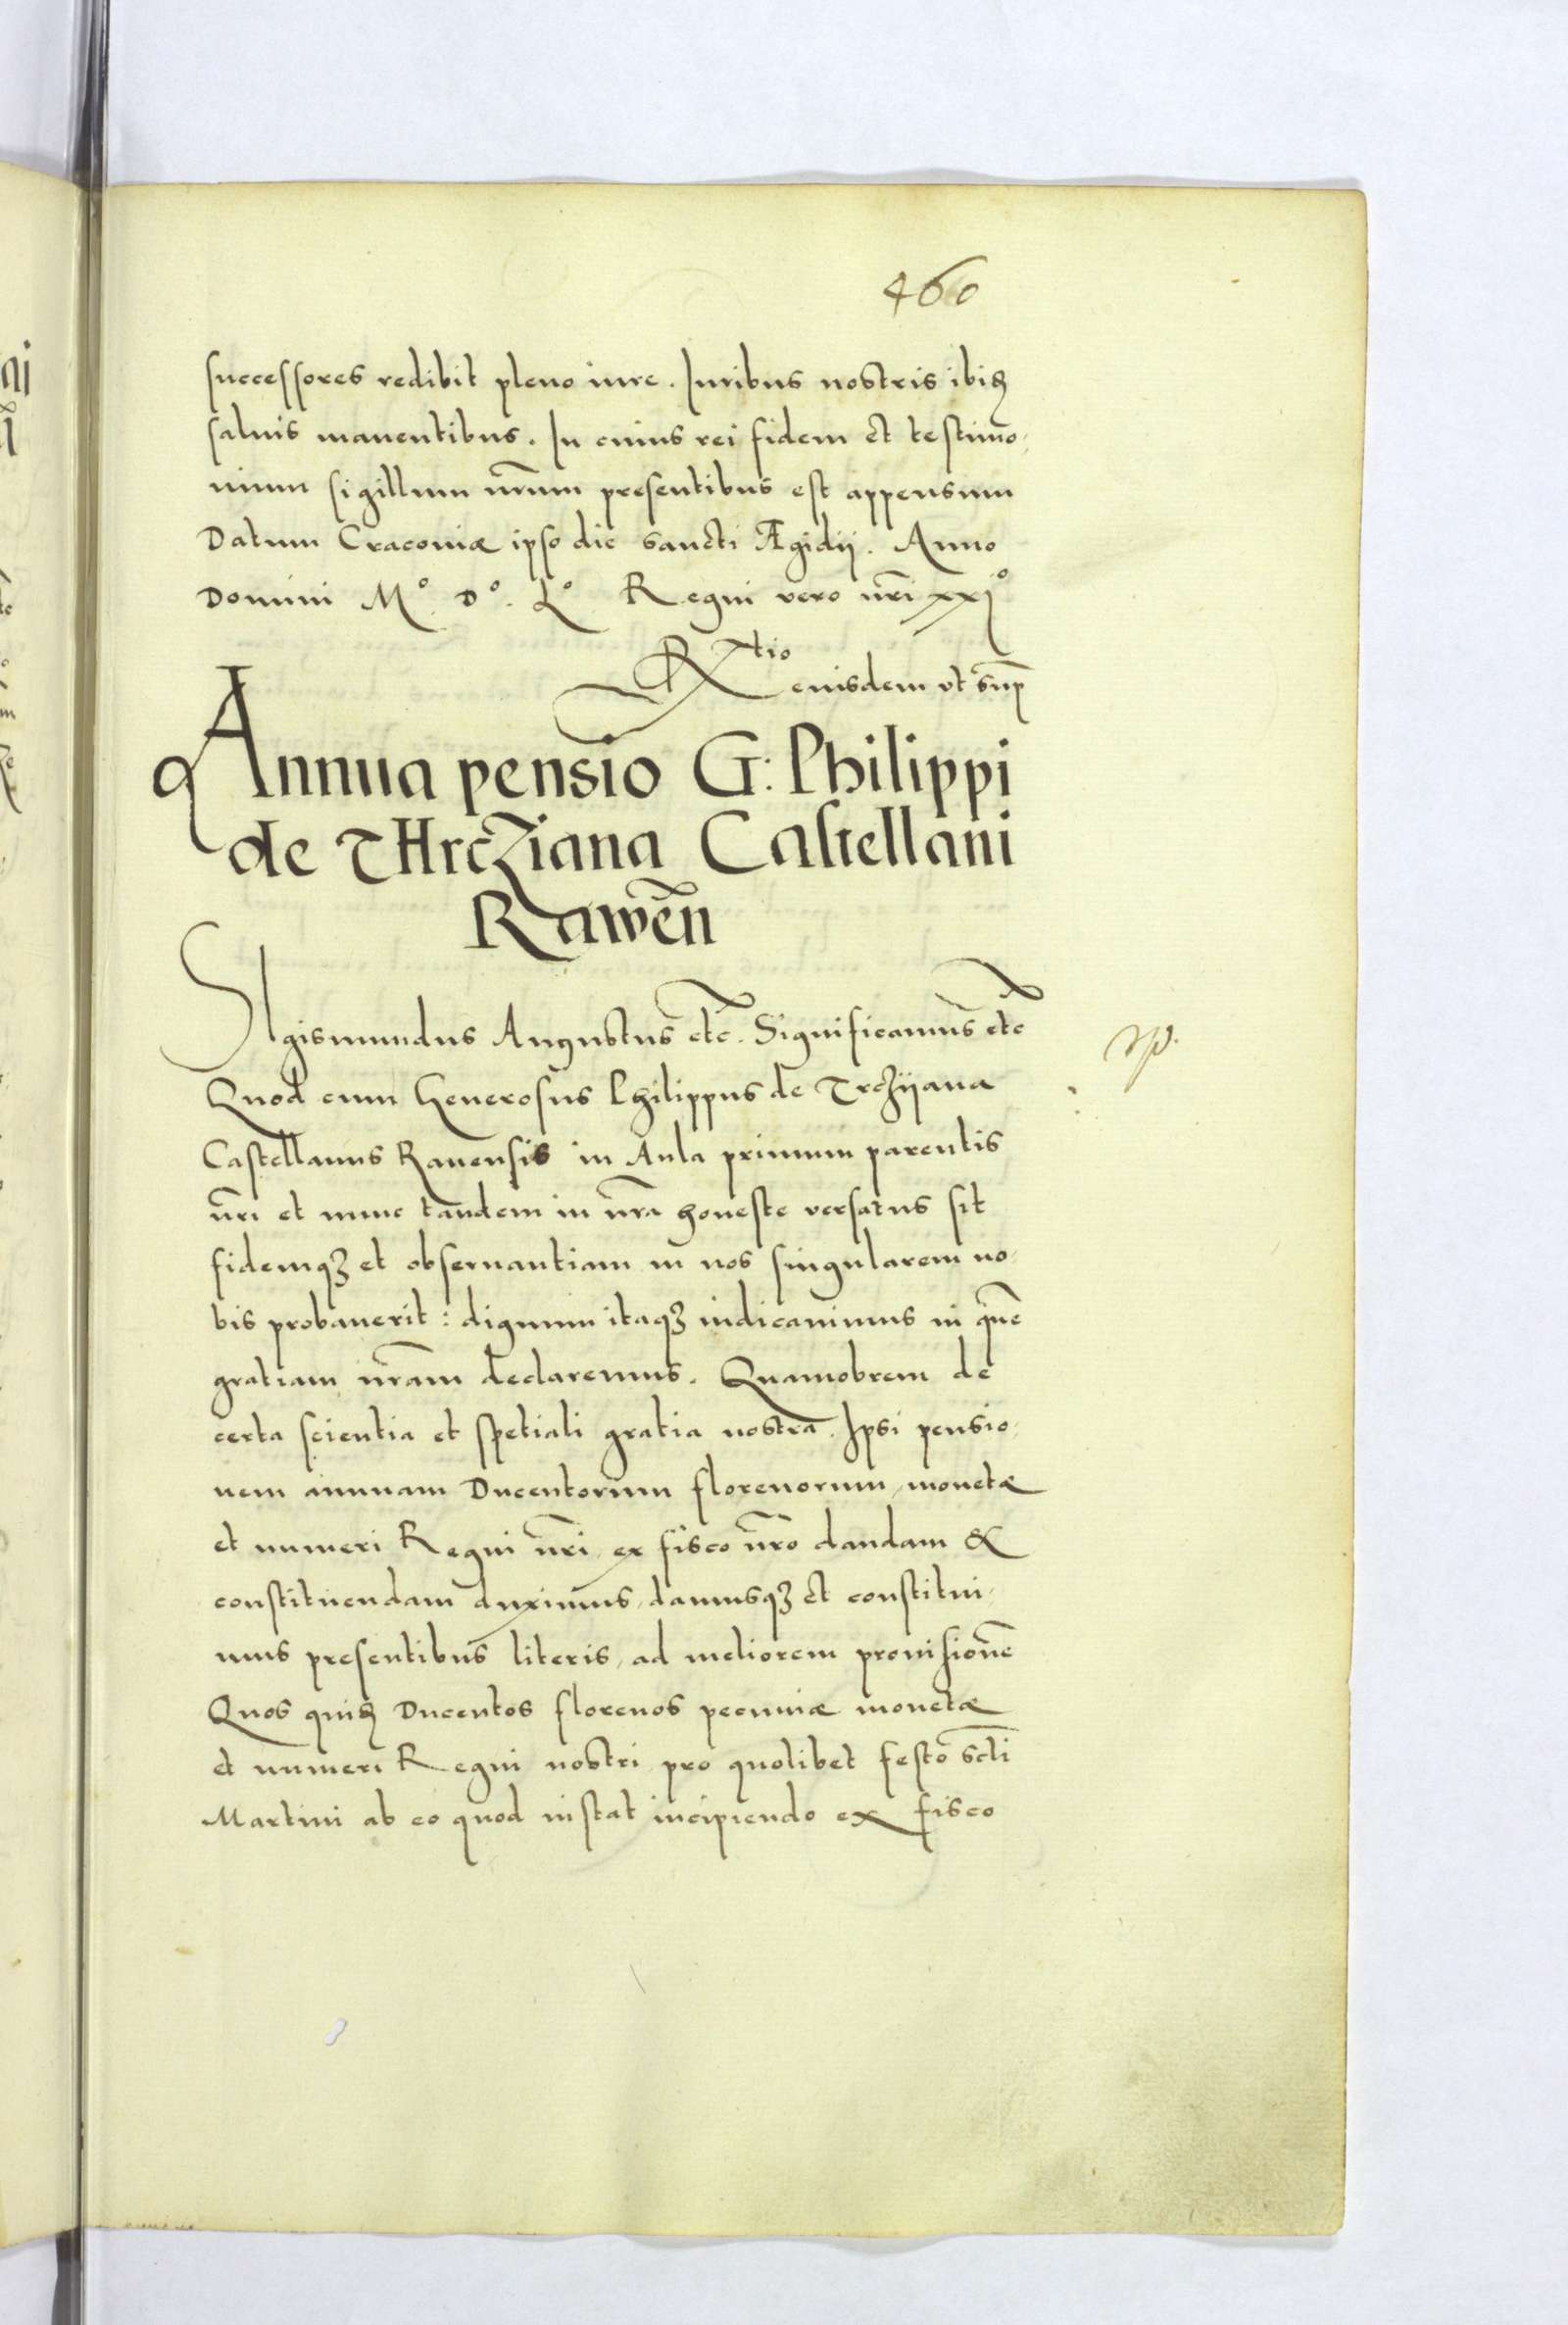 460
successores redibit pleno iure. Iuribus nostris ibid
saluis manentibus. In cuius rei fidem et testimo,
nium sigillum nr̃um presentibus est appensum
Datum Cracoviæ ipso die sancti Ægidij. Anno
Domini Mº. Dº. Lº Regni vero nr̃i xxjº
Rtio
eiusdem vt sup
Annua pensio G: Philippi
de THrcziana Castellani
Rawen̄
SIgismundus Augustus etc. Significamus etc
Quod cum Generosus Philippus de Trczijana
Castellanus Rauensis in Aula primum parentis
nr̃i et nunc tandem in nr̃a honeste versatus sit
fidemqꝫ et obseruantiam in nos singularem no,
bis probauerit: dignum itaqꝫ iudicauimus in quē
gratiam nr̃am declaremus. Quamobrem de
certa scientia et spetiali gratia nostra. Ipsi pensio,
nem annuam Ducentorum florenorum, monetæ
et numeri Regni nr̃i, ex fisco nr̃o dandam &
constituendam duximus, damusqꝫ et constitui,
mus presentibus literis, ad meliorem prouisionē
Quos quid Ducentos florenos pecuniæ monetæ
et numeri Regni nostri pro quolibet festo scti
Martini ab eo quod instat incipiendo ex fisco